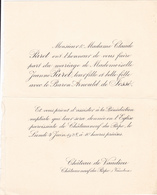 Monsieur & Madame Claude
Pirot ont l'honneur de vous faire
part du mariage de Mademoiselle
Jeanne Pirot, leur fille et belle-fille
avec le Baron Arnould de
Et vous prient d'assister à la Bénédiction
nuptiale qui leur sera donnée en l'Église
paroissiale de Châteauneuf du Pape, le
Lundi 6 Juin à heures précises
Château de Vaudieu
Châteauneuf du Pape